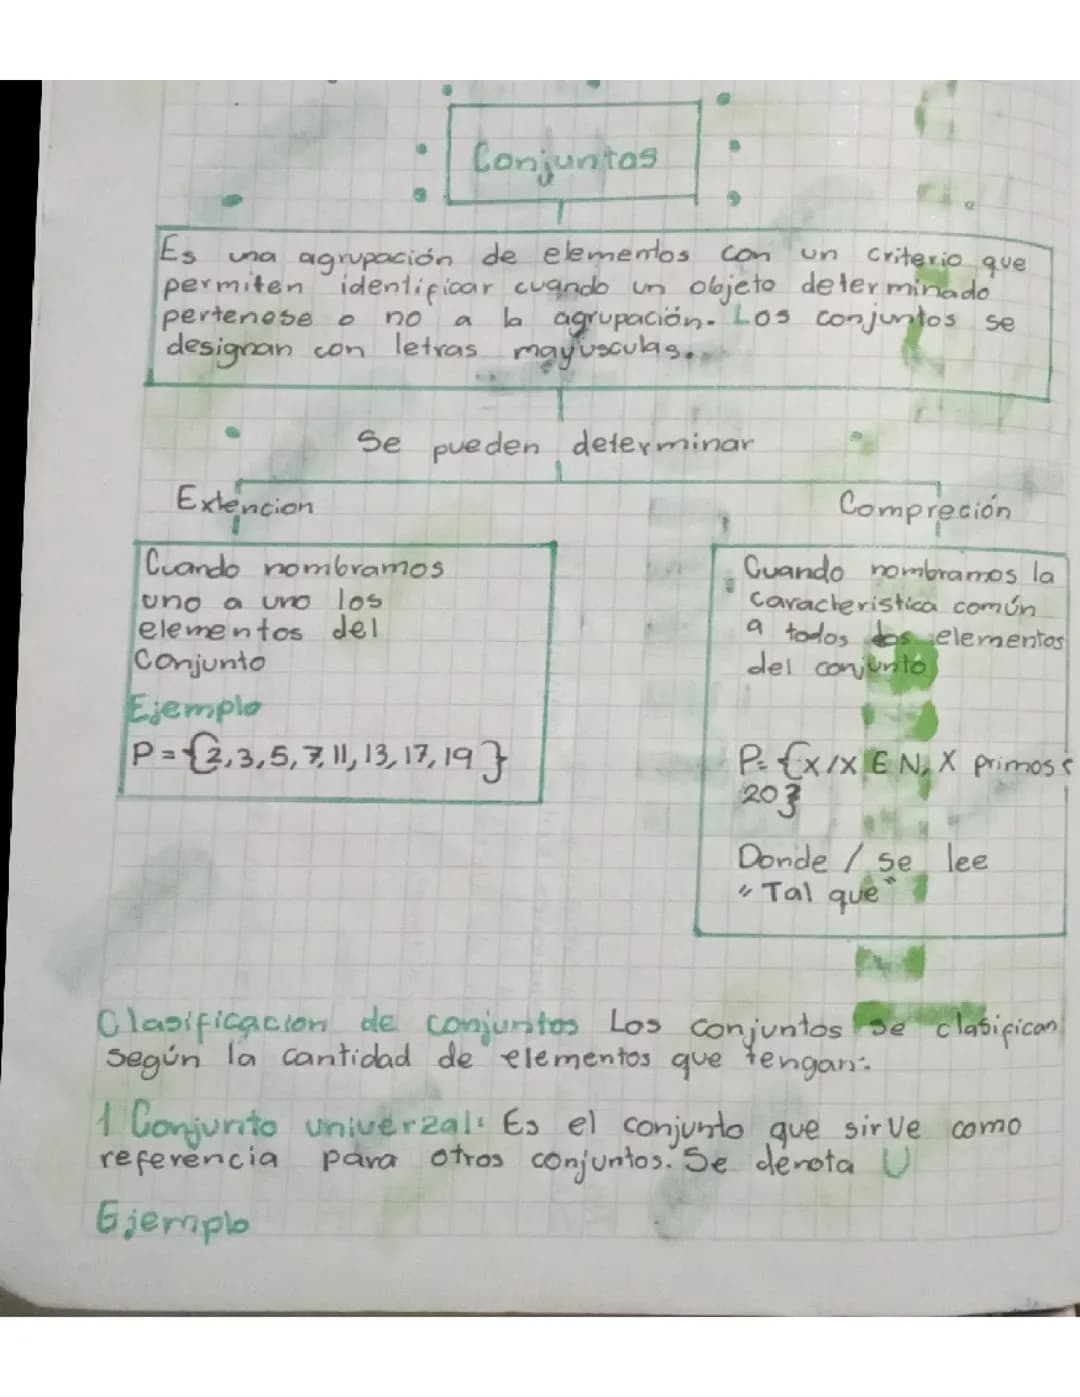 Conjuntos
Es una agrupación de elementos con un criterio que
permiten identificar cuando un objeto determinado
pertenese o no a la agrupación. Los conjuntos se
designan con letras mayusculas.
Se pueden determinar
Extencion
Cuando nombramos
uno a uno los
elementos del
Conjunto
Ejemplo
P = {2,3,5,7,11,13,17,19}
Compreción
Cuando nombramos la
caracteristica común
a todos los elementos
del conjunto
P= {X/X E N, X primos ≤
20}
Donde / se lee
"Tal que"
Clasificacion de conjuntos Los conjuntos se clasifican
Según la cantidad de elementos que tengan:
1 Conjunto univerzal: Es el conjunto que sirve como
referencia para otros conjuntos. Se denota U
Ejemplo